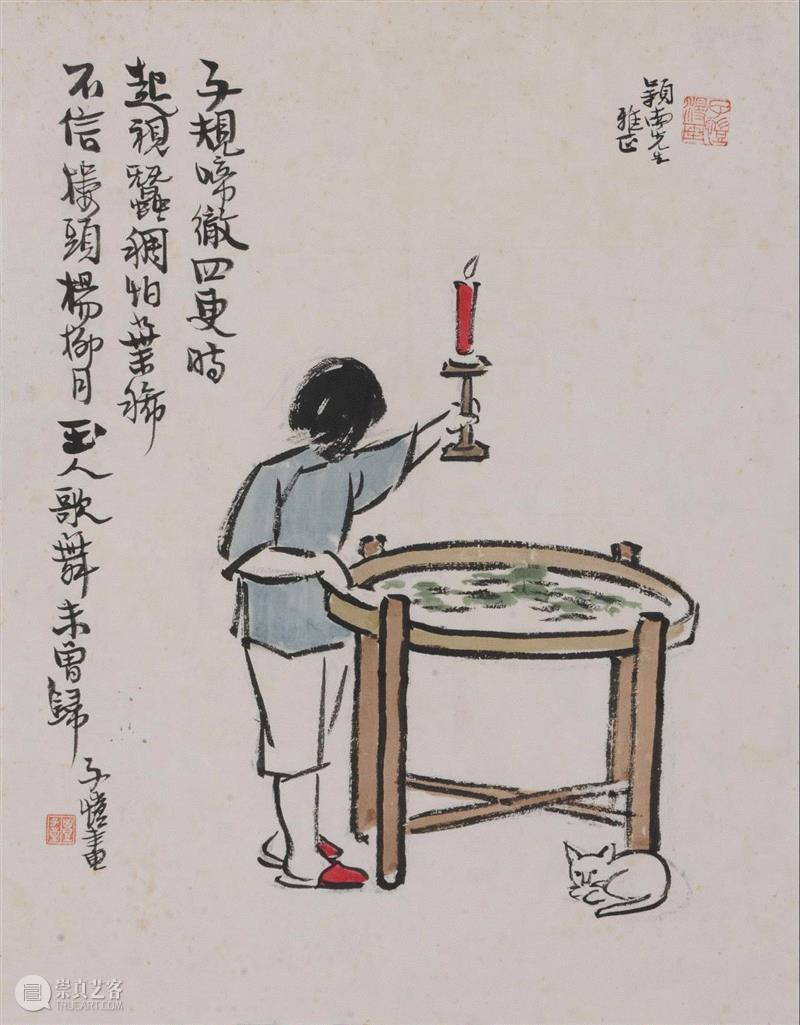 穎南先生
雅正
子愷
漫畫
子規啼徹四更時
起視蠶稠怕葉稀
不信樓頭楊柳月玉人歌舞未曾歸
子愷畫
崇真艺客
TRUEART.COM